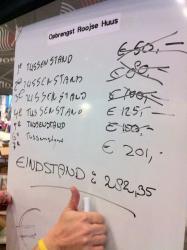 Opbrengst Roojse Huus
1e TUSSENSTAND € 50,-
2e TUSSENSTAND € 80,-
3e TUSSENSTAND € 100,-
4e TUSSENSTAND € 125,-
5e TUSSENSTAND € 150,-
Tussenstand € 201,-
EINDSTAND : 282,35